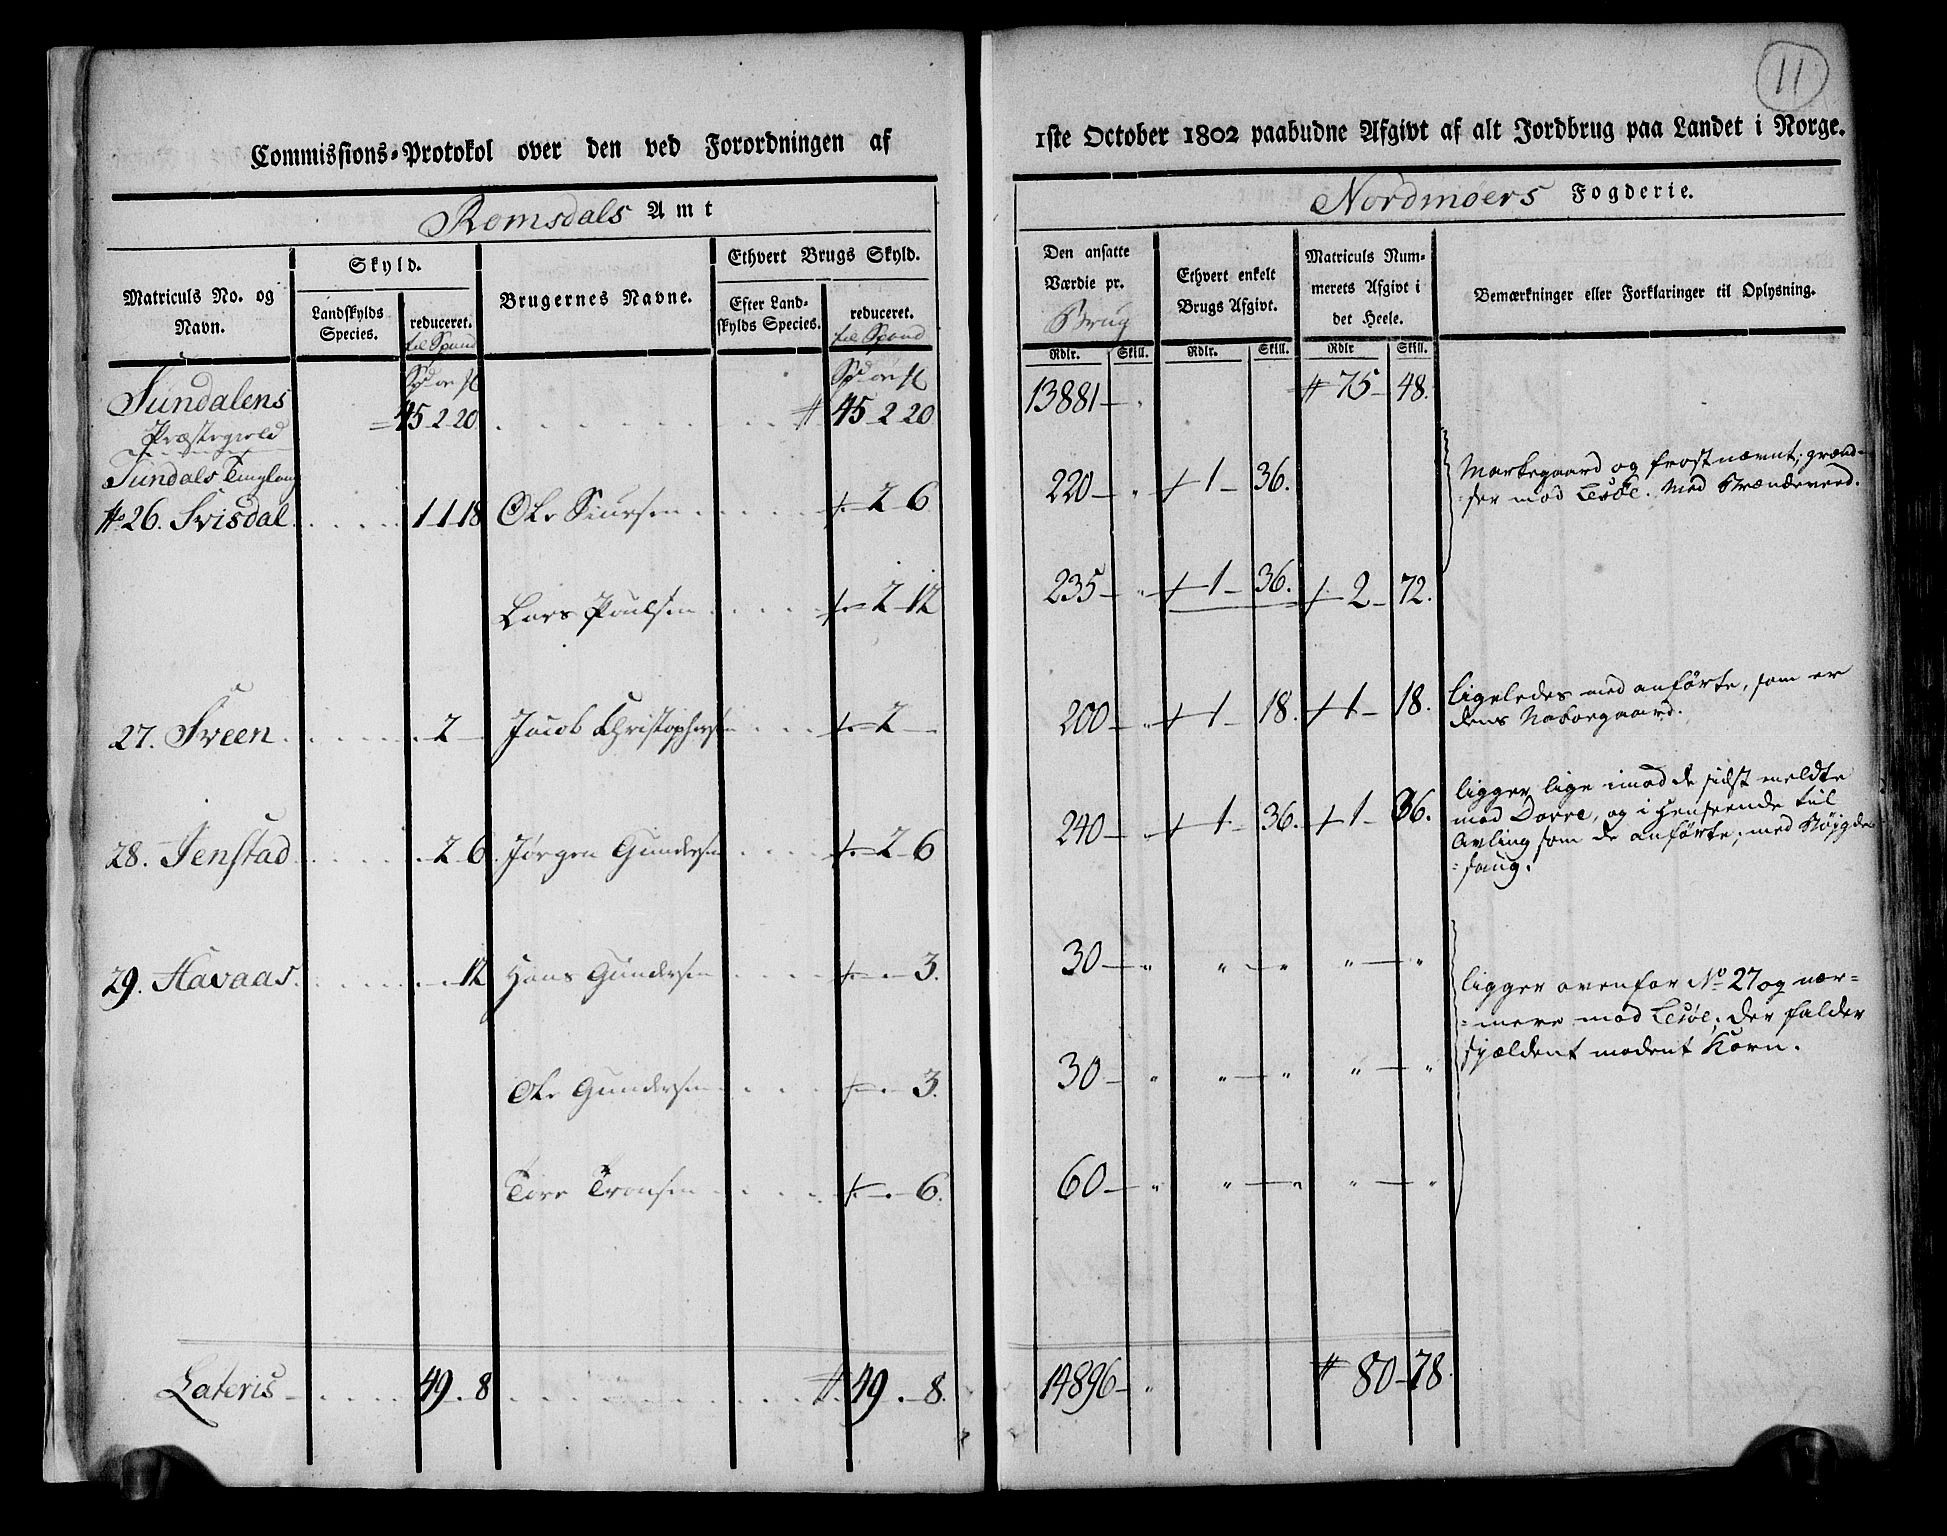 11
Commissions-Protokol over den ved Forordningen af
1ste October 1802 paabudne Afgivt af alt Jordbrug paa Landet i Norge.
Romsdals Amt
Nordmøers Fogderie.
Matriculs No. og
Navn.
Skyld.
Landskylds
Species.
reduceret.
til Spand
Brugernes Navne.
Ethvert Brugs Skyld.
Efter Land-
skylds Species.
reduceret.
til Spand
Den ansatte
Værdie pr.
Brug
Ethvert enkelt
Brugs Afgivt.
Matriculs Num-
merets Afgivt i
det Heele.
Bemærkninger eller Forklaringer til Oplysning.
Rdlr. Skill. Rdlr. Skill. Rdlr Skill.
Sundalens 45 2 20 45 2 20 13881 75 48.
Præstegield
Sundals Tinglaug
No 26. Svisdal 1 1 18 Ole Siursen 2 6 220 1 36. Markegaard og frostnæmt; grænd-
ser mod Lesøe. Med Brændeveed.
Lars Poulsen 2 12 235 1 36. 2 72.
27. Sveen 2 Jacob Christophersen 2 200 1 18. 1 18. ligeledes med anførte, som er
dens Naboegaard.
28. Jenstad 2 6 Jørgen Gundersen 2 6 240 1 36. 1 36. ligger lige imod de sidst meldte
mod Dovre, og i Henseende til
Avling som de anførte; med
29. Havaas 12 Hans Gundersen 3. 30 ligger ovenfor No 27 og nær-
mere mod Lesøe; der falder
sjældent modent Korn.
Ole Gundersen 3. 30
Tore Tronsen 6. 60
Lateris 49. 8 49. 8. 14896 80 78.